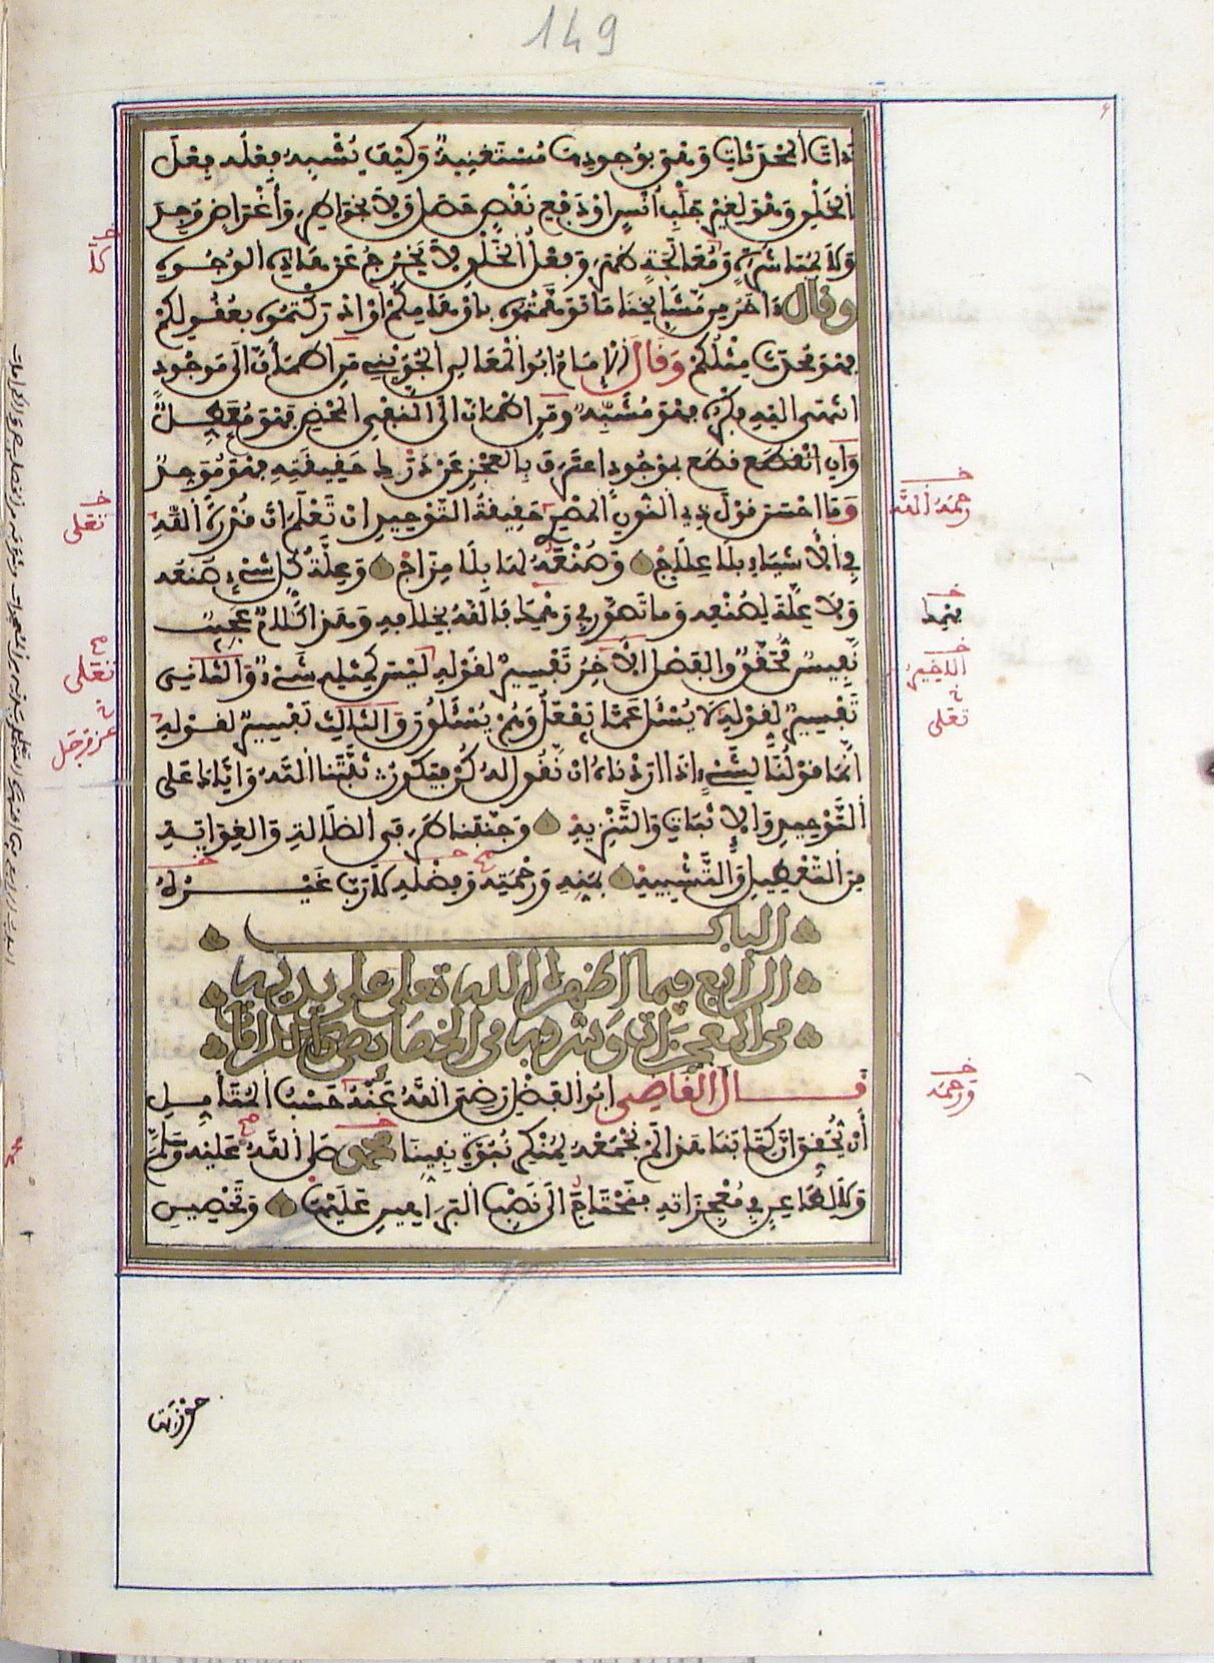 149
ذات المحدثات وهو بوجودها مستغنية وكيف يشبه فعله فعل
الخلق وهو لغير جلب أنس او دفع نقص حصل ولا بخواطر وأغراض وجد
ولا بمباشرة ومعالجة ظهر وفعل الخلق لا يخرج عن هذه الوجوه
وقال ءاخر من مشايخنا ما توهمتموه باوهامكم او ادركتموه بعقولكم
فهو محدث مثلكم وقال الإمام ابو المعالي الجويني من اطمأن الى موجود
انتهى اليه فكره فهو مشبه ومن اطمأن الى النفي المحض فهو معطل
وان انقطع بموجود اعترف بالعجز عن درك حقيقته فهو موحد
وما احسن قول ذي النون المصري حقيقة التوحيد ان تعلم ان قدرة الله
في الأشياء بلا علاج وصنعه لها بلا مزاج وعلة كل شيء صنعه
ولا علة لصنعه وما تصور في وهمك فالله بخلافه وهذا الكلام عجيب
نفيس محقق والفصل الآخر تفسير لقوله ليس كمثله شيء والثاني
تفسير لقوله لا يسئل عما يفعل وهم يسئلون والثالث تفسير لقوله
انما قولنا لشيء اذا اردناه ان نقول له كن فيكون ثبتنا الله واياك على
التوحيد والإثبات والتنزيه وجنبنا طرفي الضلالة والغواية
من التعطيل والتشبيه بمنه ورحمته وفضله لا رب غيره
الباب
الرابع فيما اظهره الله تعلى على يديه
من المعجزات وشرفه من الخصائص والكرامات
قال القاضي ابو الفضل رضي الله عنه حسب المتأمل
أن يحقق ان كتابنا هذا لم نجمعه لمنكر نبوة نبينا محمد صلى الله عليه وسلم
ولا لطاعن في معجزاته فنحتاج الى نصب البراهين عليها وتحصين
حوزتها
رحمه الله
وهمك
الاخير
تعلى
ورحمه
تعلى
تعلى
عز وجل